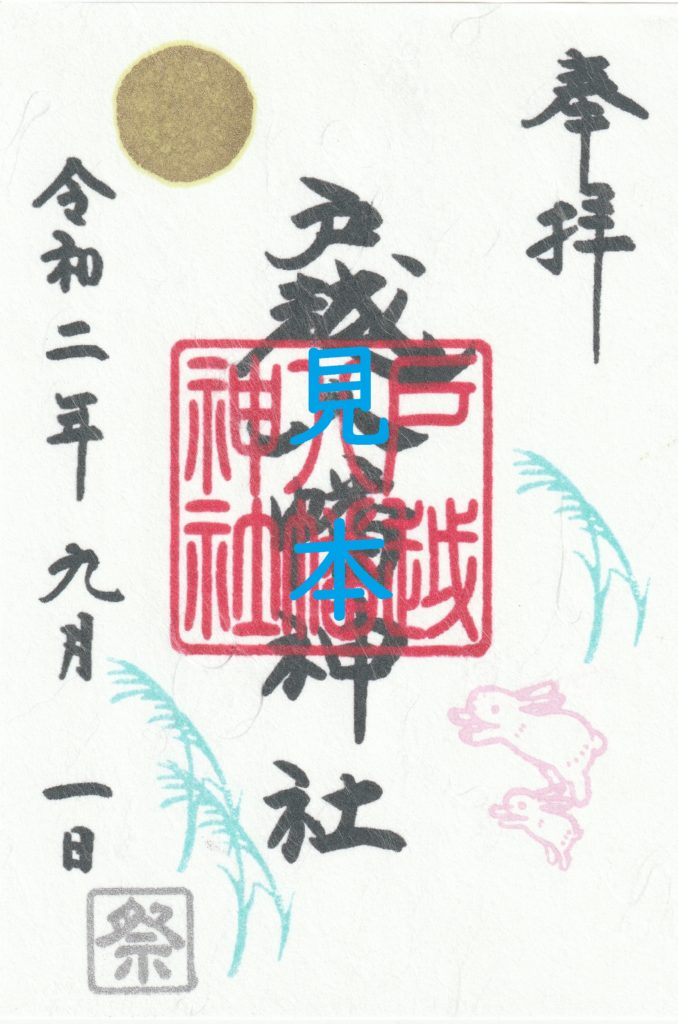 奉拝
戸越八幡神社
戸越
八幡
神社
見本
令和二年九月一日
祭